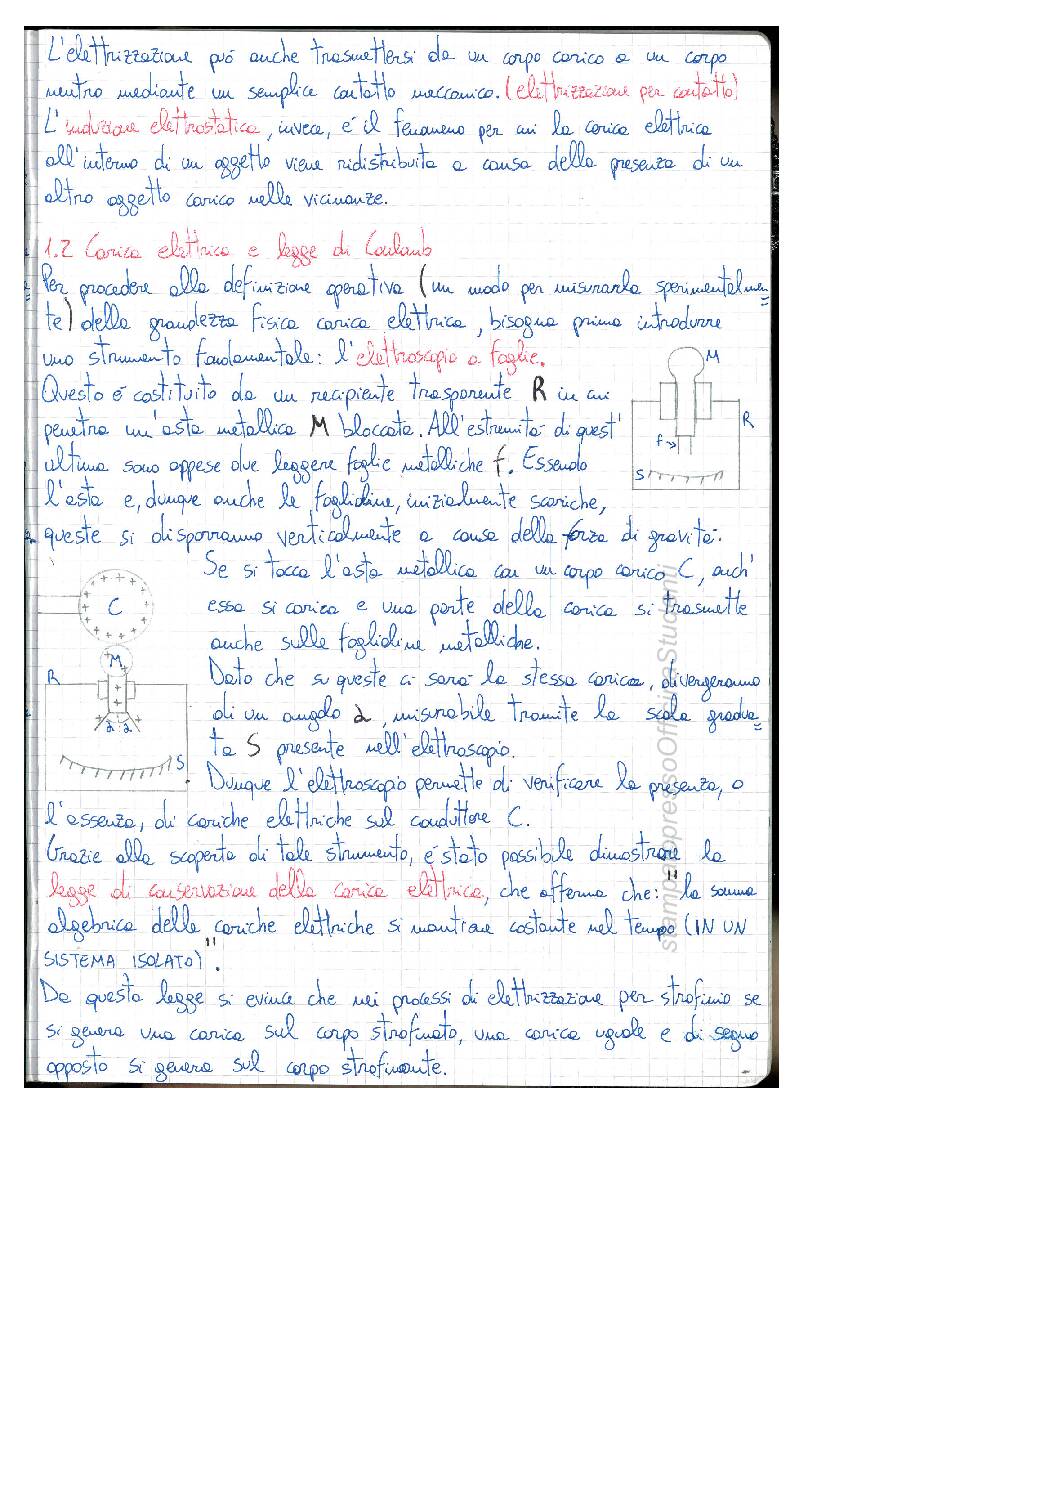 L'elettrizzazione può anche trasmettersi da un corpo carico a un corpo
neutro mediante un semplice contatto meccanico. (elettrizzazione per contatto)
L'induzione elettrostatica, invece, é il fenomeno per cui la carica elettrica
all'interno di un oggetto viene ridistribuita a causa della presenza di un
altro oggetto carico nelle vicinanze.
1.2 Carica elettrica e legge di Coulomb
Per procedere alla definizione operativa (un modo per misurarla sperimentalmen
te) della grandezza fisica carica elettrica, bisogna prima introdurre
uno strumento fondamentale: l'elettroscopio a foglie.
Questo é costituito da un recipiente trasparente R in cui
penetra un'asta metallica M bloccata. All'estremità di quest'
ultima sono appese due leggere foglie metalliche f. Essendo
l'asta e, dunque anche le foglioline, inizialmente scariche,
queste si disporranno verticalmente a causa della forza di gravità.
M
R
f
S
Se si tocca l'asta metallica con un corpo carico C, anch'
essa si carica e una parte della carica si trasmette
anche sulle foglioline metalliche.
Dato che su queste ci sarà la stessa carica, divergeranno
di un angolo α, misurabile tramite la scala gradua
ta S presente nell'elettroscopio.
Dunque l'elettroscopio permette di verificare la presenza, o
l'assenza, di cariche elettriche sul conduttore C.
C
M
R
α α
S
Grazie alla scoperta di tale strumento, é stato possibile dimostrare la
legge di conservazione della carica elettrica, che afferma che: "la somma
algebrica delle cariche elettriche si mantiene costante nel tempo (IN UN
SISTEMA ISOLATO)".
Da questa legge si evince che nei processi di elettrizzazione per strofinio se
si genera una carica sul corpo strofinato, una carica uguale e di segno
opposto si genera sul corpo strofinante.
stampatopressoOfficinaStudenti